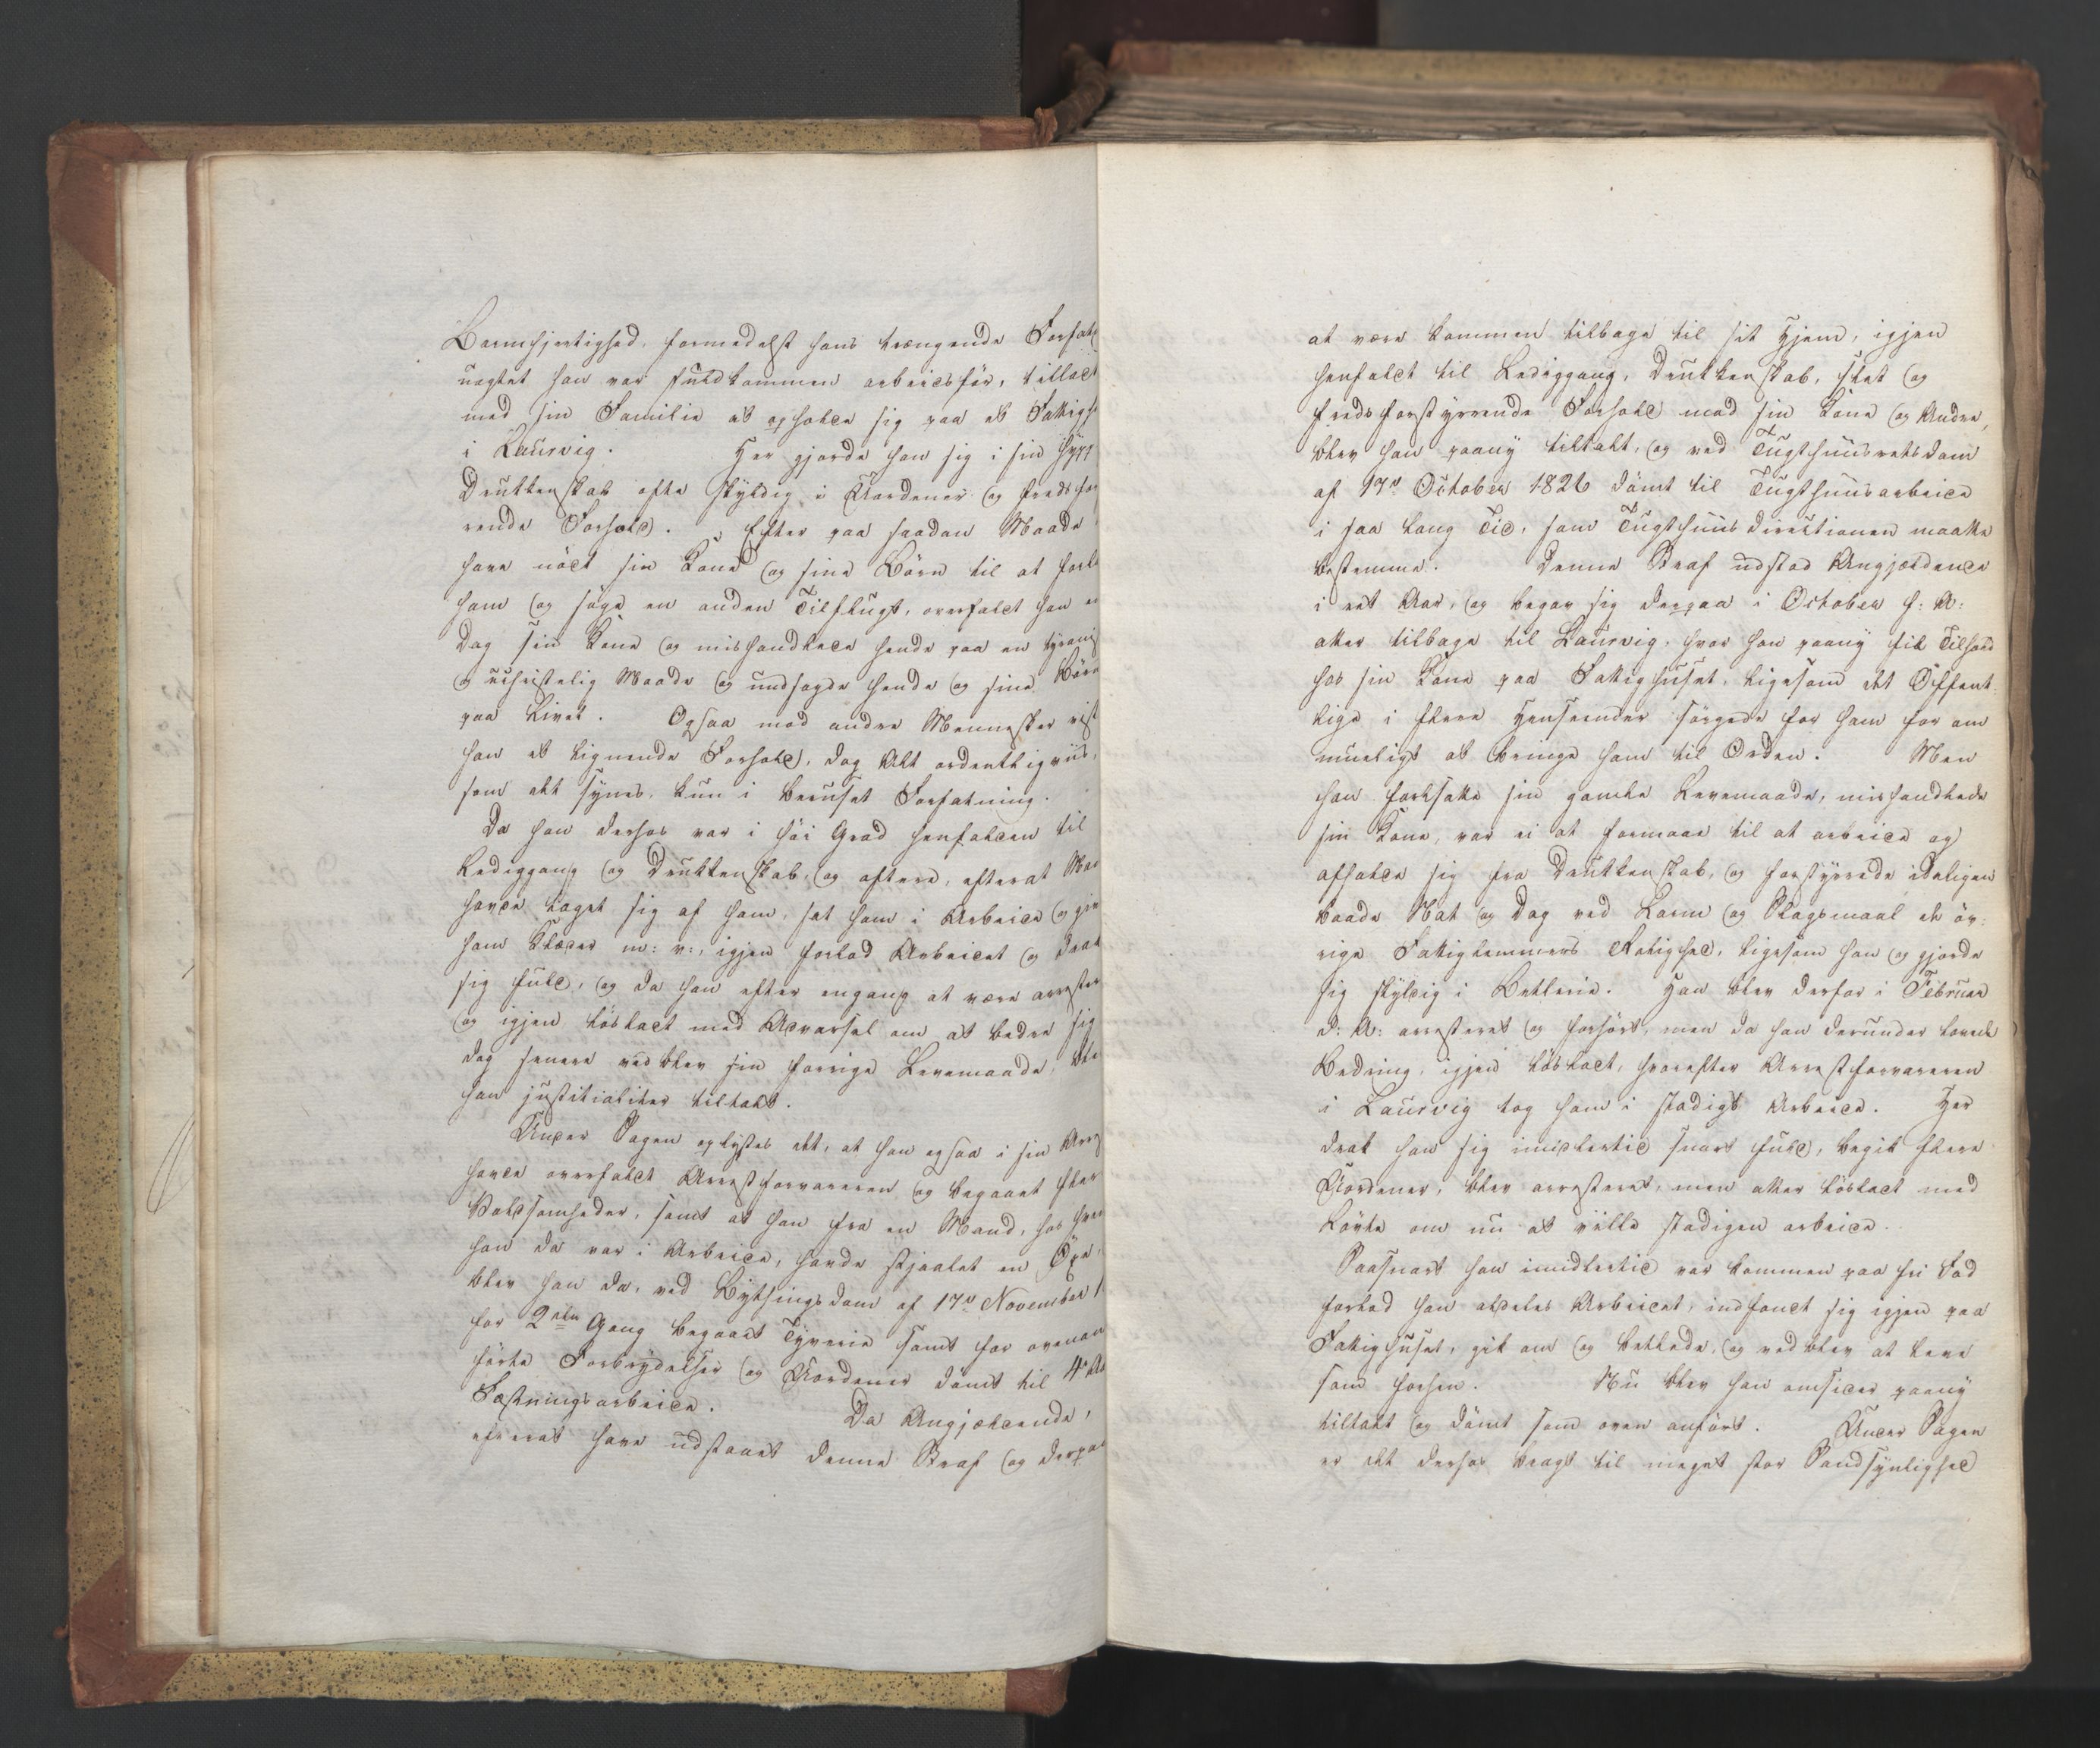 Barmhjertighed, formedelst hans trængende Forfat
uagtet han var fuldkommen arbeidsfør, tilladt
med sin Familie at opholde sig paa et Fattigh
i Laurvig. Her gjorde han sig i sin hypp
Drukkenskab ofte skyldig i Uordener og fredsfor
rende Forhold. Efter paa saadan Maade
have nödt sin Kone og sine Börn til at forla
ham og söge en anden Tilflugt, overfaldt han en
Dag sin Kone og mishandlede hende paa en tyranis
og uchristelig Maade og undsagde hende og sine Börn
paa Livet. Ogsaa mod andre Mennesker vist
han et lignende Forhold, dog Alt ordentligviis,
som det synes, kun i beruset Forfatning.
Da han derhos var i höi Grad henfalden til
Lediggang og Drukkenskab, og oftere, efterat Man
havde taget sig af ham, sat ham i Arbeide og giv
ham Klæder m: v:, igjen forlod Arbeidet og drak
sig fuld, og da han efter engang at være arrester
og igjen lösladt med Advarsel om at bedre sig
dog senere vedblev sin forrige Levemaade, ble
han justitialiter tiltalt.
Under Sagen oplystes det, at han ogsaa i sin Arres
havde overfaldt Arrestforvareren og begaaet fler
Voldsomheder, samt at han fra en Mand, hos hvem
han da var i Arbeide, havde stjaalet en Öxe,
blev han da, ved Bythingsdom af 17de November 1
for 2den Gang begaaet Tyverie samt for ovenan
förte Forbrydelser og Uordener dömt til 4re Aa
Fæstningsarbeide. Da Angjældende,
efterat have udstaaet denne Straf og derpaa
at være kommen tilbage til sit Hjem, igjen
henfaldt til Lediggang, Drukkenskab, slet og
fredsforstyrrende Forhold mod sin Kone og Andre,
blev han paany tiltalt, og ved Tugthuusretsdom
af 17de October 1826 dömt til Tugthuusarbeide
i saa lang Tid, som Tugthuusdirectionen maatte
bestemme. Denne Straf udstod Angjældende
i eet Aar, og begav sig derpaa i October f: A:
atter tilbage til Laurvig, hvor han paany fik Tilhold
hos sin Kone paa Fattighuset, ligesom det Offent
lige i flere Henseender sörgede for ham for om
mueligt at bringe ham til Orden. Men
han fortsatte sin gamle Levemaade, mishandlede
sin Kone, var ei at formaae til at arbeide og
afholde sig fra Drukkenskab, og forstyrrede idaligen
baade Nat og Dag ved Larm og Slagsmaal de öv:
rige Fattiglemmers Rolighed, ligesom han og gjorde
sig skyldig i Betlerie. Han blev derfor i Februar
d: A: arresteret og forhört, men da han derunder lovede
Bedring, igjen lösladt, hvorefter Arrestforvareren
i Laurvig tog ham i stadigt Arbeide. Her
drak han sig imidlertid snart fuld, begik flere
Uordener, blev arresteret, men atter lösladt med
Lövte om nu at ville stadigen arbeide.
Saasnart han imidlertid var kommen paa fri Fod
forlod han aldeles Arbeidet, indfandt sig igjen paa
Fattighuset, gik om og betlede, og vedblev at leve
som forhen. Nu blev han omsider paany
tiltalt og dömt som oven anfört. Under Sagen
er det derhos bragt til meget stor Sandsynlighed